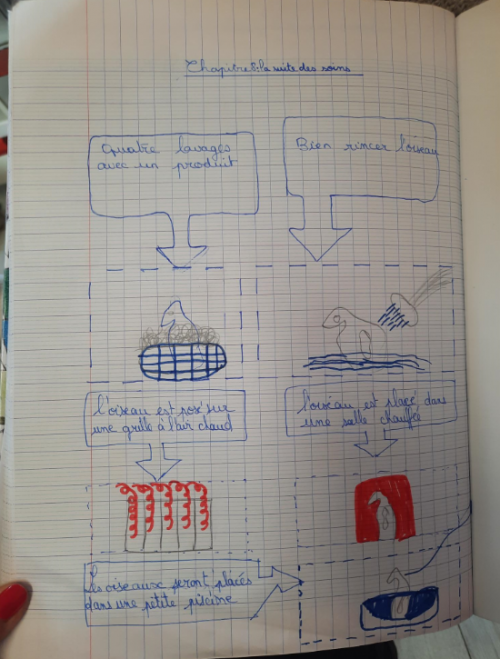 Chapitre 8: la suite des soins
Quatre lavages
avec un produit
Bien rincer l'oiseau
l'oiseau est posé sur
une grille à l'air chaud
l'oiseau est placé dans
une salle chauffé
Les oiseaux seront placés
dans une petite piscine